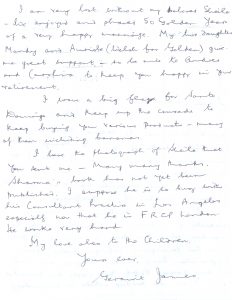 I am very lost without my beloved Sheila
- we enjoyed and shared 50 Golden Years
of a very happy marriage. My two Daughters
Mandy and (Welsh for Golden) give
me great support - so do
and to keep you happy in your
retirement.
I wave a big flag for
and keep up the crusade to
keep buying you various products - many
of them
I love the Photograph of Sheila that
you sent me - Many many thanks.
Sharma's book has not yet been
published. I suppose he is so busy with
his Consultant Practice in Los Angeles
especially now that he is FRCP London
He works very hard
My love also to the Children.
Yours ever
James